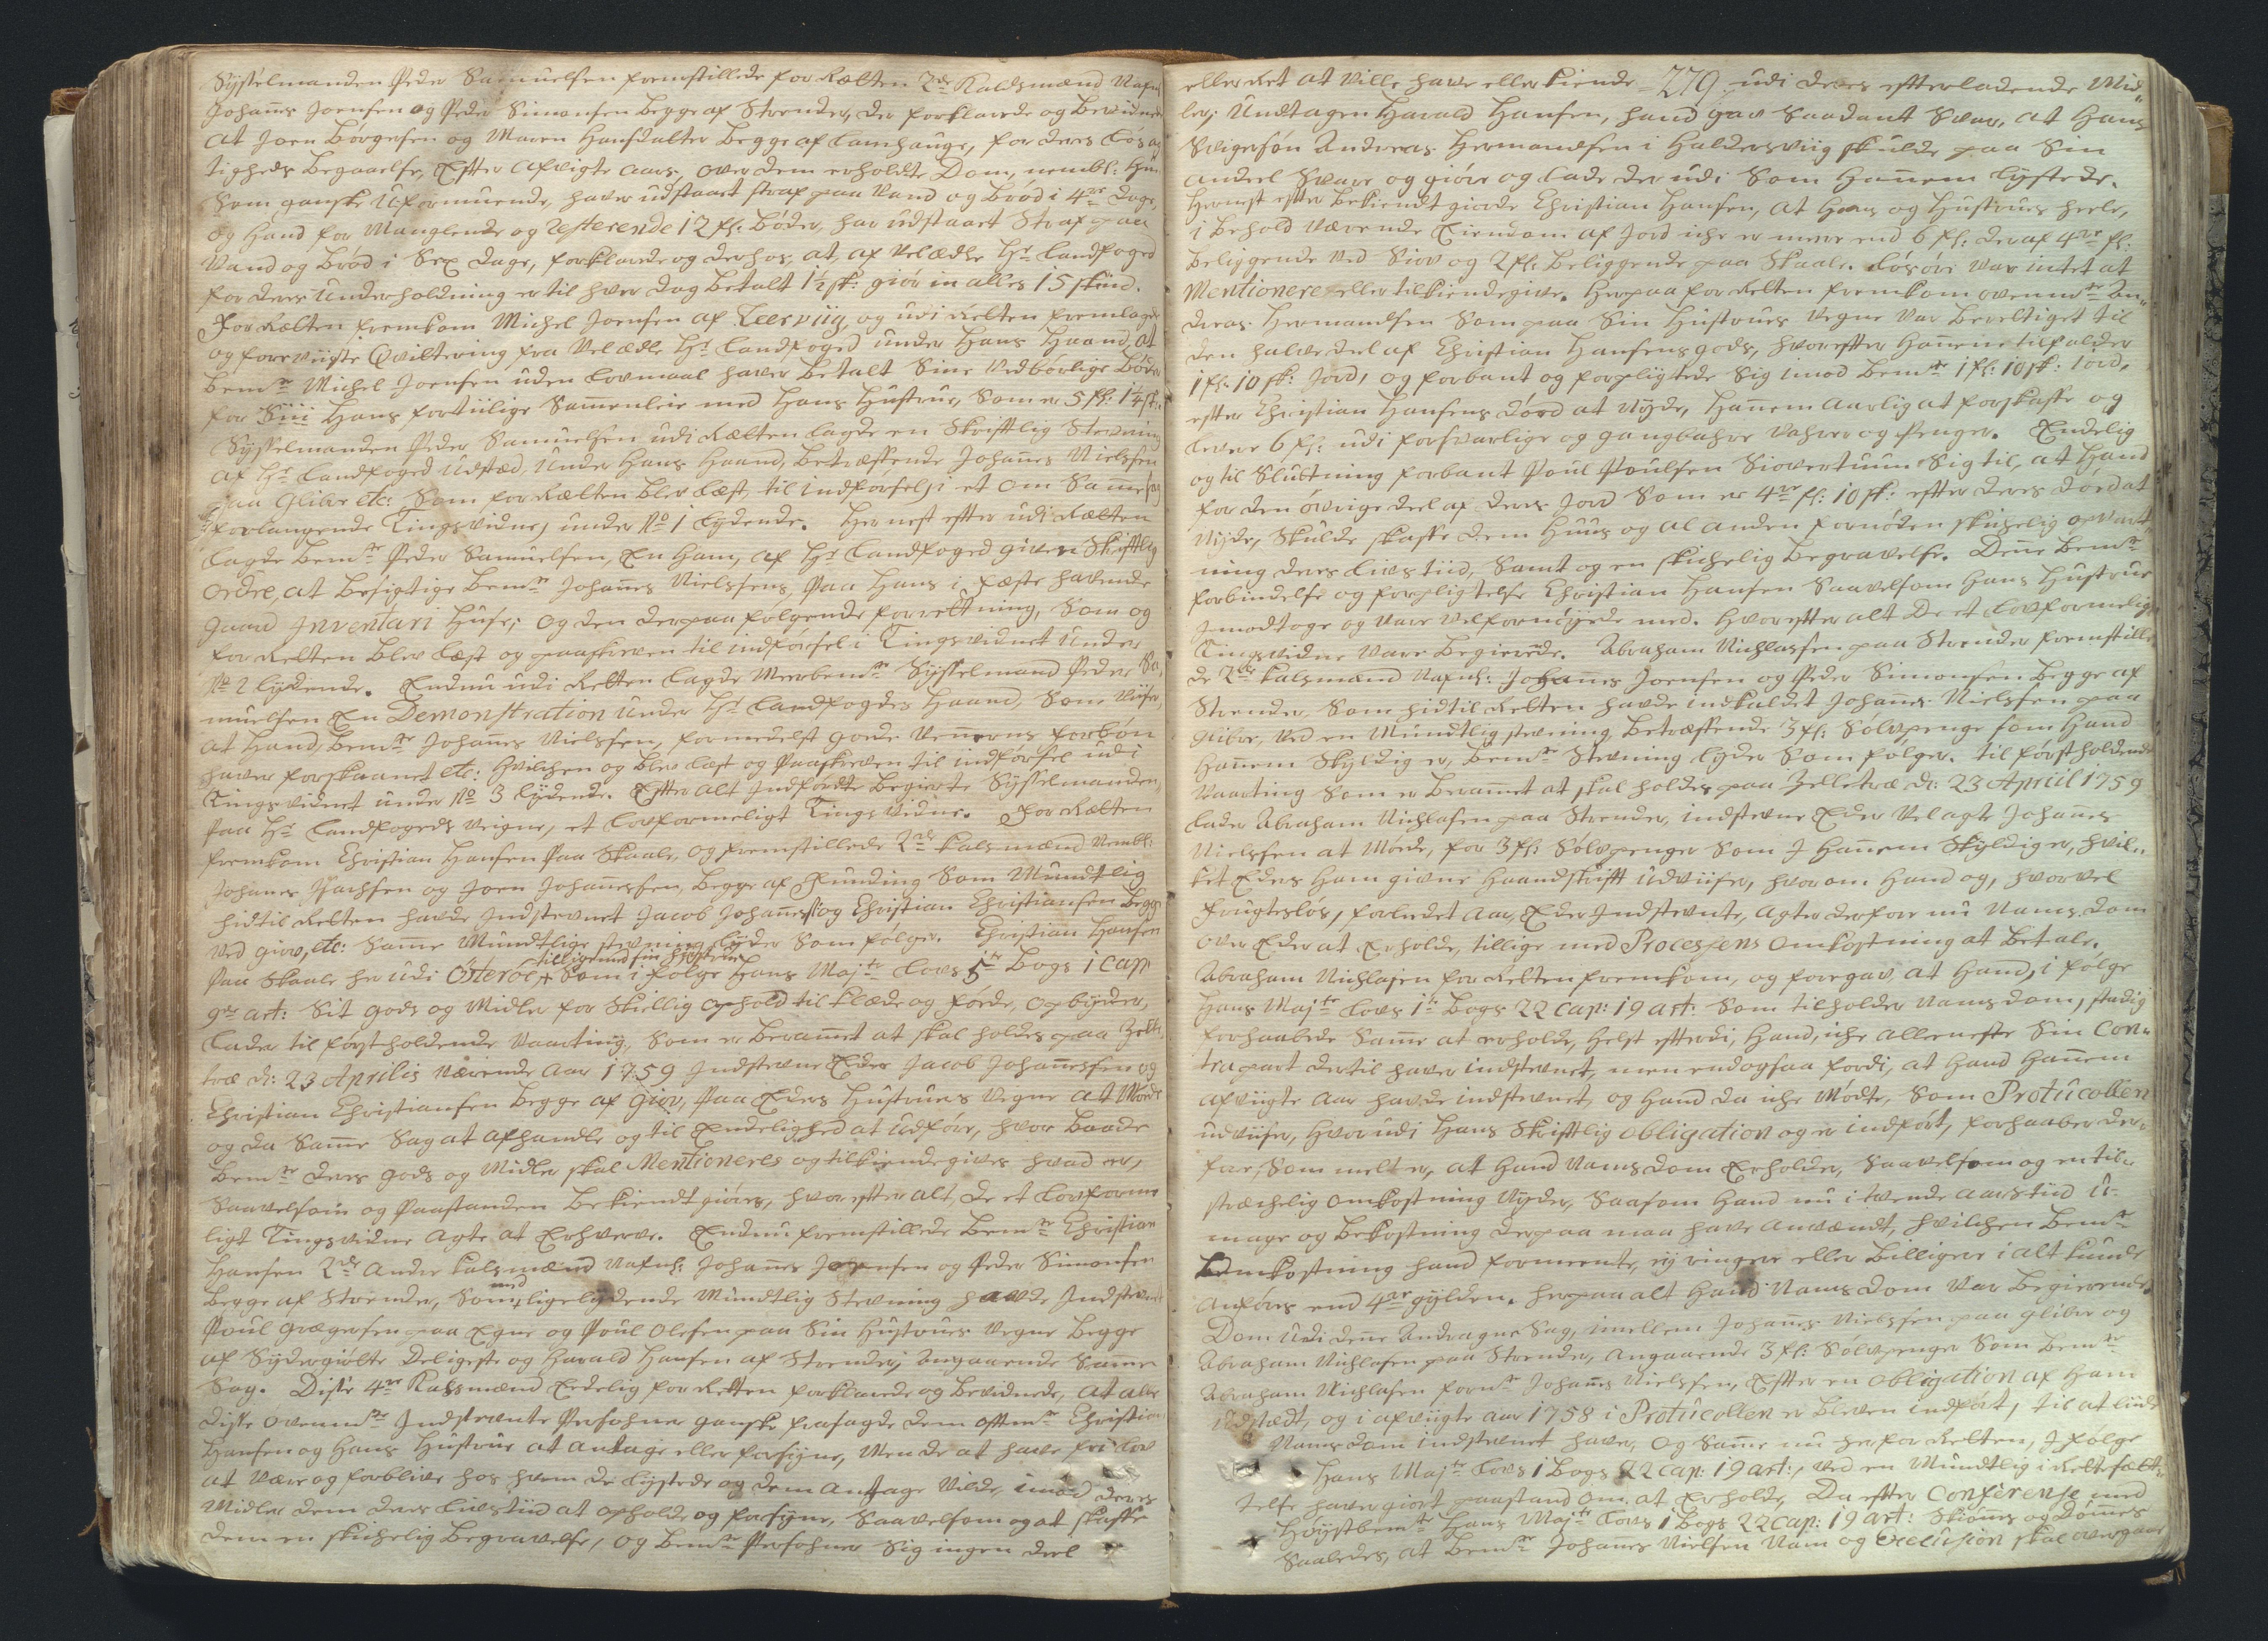 Sysselmanden Peder Samuelsen fremstillede for Retten 2de Kaldsmænd Nafnl
Johañes Joensen og Peder Simonsen begge af Strender, der forklarede og bevidnede
at Joen Børgesen og Maren Hansdatter begge af Lamhauge, for deres Løsag
tigheds begaaelse, Efter afvigte aars, over dem erholdte Dom, nembl: Hun
Som ganske uformuende, haver udstaaet straf paa Vand og brød i 4re Dage,
og Hand for Manglende og resterende 12 fl: bøder, har udstaaet Straf paa
Vand og brød i Sex dage, forklarede og derhos, at af Velædle Hr Landfoged
for deres Underholdning er til hver dag betalt 1½ sk: giør in alles 15 skind.
For Retten fremkom Michel Joensen af Leerviig, og udi Retten fremlagde
og foreviiste Qvittering fra Velædle Hr Landfoged under Hans Haand, at
bemte Michel Joensen uden Lovmaal haver betalt Sine Vedbørlige Bøder
for Sin Hans fortiilige Samenleie med Hans Hustrue, Som er 5 fl: 1¼ sk:
Sysselmanden Peder Samuelsen udi Retten lagde en Skriftlig Stevning
af Hr Landfoged Udstæd, Under Hans Haand, betreffende Johañes Nielssen
paa Glibre etc: Som for Retten blev læst, til indførsel i et om Same sag
forlangende Tingsvidne, under No 1 lydende. Hernest efter udi Retten
lagde bemte Peder Samuelsen, En ham, af Hr Landfoged given Skriftlig
Ordre, at besigtige bemte Johañes Nielssens, Paa Hans i fæste havende
Gaard Inventari Huse; og den derpaa følgende forrettning, Som og
for Retten blev læst og paaskreven til indførsel i Tingsvidnet Under
No 2 lydende. Endnu udi Retten lagde Meerbemte Sysselmand Peder Sa-
muelsen En Demonstration under Hr Landfogdes Haand, Som Viiser,
at Hand, bemte Johañes Nielssen, formedelst gode Veñerns forbøn
haver forskaanet etc: Hvilchen og blev læst og Paaskreven til indførsel udi
Tingsvidnet under No 3 lydende. Efter alt Indførdte begierte Sysselmanden
Paa Hr Landfogeds Veigne, et Lovformeligt Tings Vidne. For Retten
fremkom Christian Hansen Paa Skaale, og fremstillede 2de Kalsmænd Nembl:
Johanes Isachsen og Joen Johañessen, begge af Funding Som Mundtlig
hid til Retten havde Indstevnet Jacob Johañess: og Christian Christiansen begge
ved Giov, etc: Same Mundtlige stevning lyder Som følger. Christian Hansen
tillige med sin Hustrue
Paa Skaale her udi Österöe + Som i følge Hans Majts Lovs 5te Bogs 1 Cap:
9de art: Sit Gods og Midler for Skiellig ophold til klæde og føede, opbyder,
Lader til først holdende Vaarting, Som er beramet at skal holdes paa Zelle
træ d: 23 Aprilis nærende Aar 1759 Indstevne Eder Jacob Johañessen og
Christian Christiansen begge af Giov, Paa Eders Hustruers Vegne at Møede
og da Same Sag at afhandle og til Endelighed at udføre, hvor baade
bemte deres gods og Midler skal Mentioneres og tilkiendegives hvad er,
Saavelsom og Paastanden bekiendtgiøres, hvorefter alt, de et Lovforme
ligt Tingsvidne Agte at Erhverve. Endnu fremstillede bemte Christian
Hansen 2de andre kalsmænd Nafnl: Johanes Joensen og Peder Simonsen
med
begge af Strender, Som, ligelydende Mundtlig Stevning havde Indstevnet
Poul Grægersen paa Egne og Poul Olesen paa Sin Hustrues Vegne begge
af Sydergiøtte Deligeste og Harald Hansen af Strender, angaaende Same
Sag. Disse 4re Kalsmænd Eedelig for Retten forklarede og bevidnede, at alle
disse ovenmte Indstevnte Persohner ganske frasagde dem oftemte Christian
Hansen og Hans Hustrue at antage eller forsyne, Men de at have fri Lov
at være og forblive hos hvem de lystede og dem Antage Vilde, imod deres
Midler dem deres Livstiid at ophold og forsyne, Saavelsom og at skaffe
dem en skichelig begravelse, og bemte Persohner Sig ingen deel
eller Ret at Ville have eller kiende 279. udi deres efterladende Mid-
ler; Undtagen Harald Hansen, hand gav Saadant Svar, at Hans
Svigersøn Andreas Hermandsen i Haldersviig skulde paa Sin
andeel Svare og giøre og lade der udi Som Hañem lystede.
Hernest efter bekiendt giorde Christian Hansen, at Hans og Hustrues heele,
i behold værende Eiendom af Jord iche er meere end 6 fl: deraf 4re fl:
beliggende ved Giov og 2 fl: beliggende paa Skaale. Løsøre var intet at
Mentionere eller tilkiendegive. Herpaa for Retten fremkom ovenmte An-
dreas Hermandsen Som paa Sin Hustrues Vegne var berettiget til
den halve deel af Christian Hansens gods, hvorefter Hañem tilfalder
1 fl: 10 sk: Jord, og forbant og forpligtede Sig imod bemte 1 fl: 10 sk: Jord,
efter Christian Hansens dód at Nyde, Hañem aarlig at forskaffe og
levere 6 fl: udi forsvarlige og gangbahre Vahrer og Penger. Endelig
og til Slutning forbant Poul Poulsen Siovertuum Sig til, at Hand
for den øvrige deel af deres Jord Som er 4re fl: 10 sk: efter deres dód at
Nyde, Skulde skaffe dem Huus og al anden fornøden skichelig opvart-
ning deres Livs tiid, Samt og en skichelig begravelse. Deñe bemte
forbindelse og forpligtelse Christian Hansen Saavelsom Hans Hustrue
Imodtoge og vare velfornøyede med. Hvorefter alt De et Lovformelig
Tingsvidne vare begierede. Abraham Nichlassen paa Strender fremstille
de 2de kalsmænd Nafnl: Johanes Joensen og Peder Simonsen begge af
Strender, Som hidtil Retten havde indkaldet Johañes Nielssen paa
Glibre, ved en Mundtlig stevning, betreffende 3 fl: Sølvpenge som Hand
Hañem Skyldig er, bemte Stevning lyder Som følger. til førstholdende
Vaarting Som er beramet at skal holdes paa Zelletræ d: 23 Apriil 1759
lader Abraham Nichlasen paa Strender, indstevne Eder Velagte Johañes
Nielssen at Møde, for 3 fl: Sølvpenger Som I Hañem Skyldig er, hvil-
ket Eders Ham givne Haandskrift udviiser, hvorom Hand og, hvorvel
frugtesløs, forledet Aar, Eder Indstevnte, agter derfore nu Nams dom
over Eder at Erholde, tillige med Processens Omkostning at betale.
Abraham Nichlasen for Retten fremkom, og foregav, at Hand, i følge
Hans Majts Lovs 1te Bogs 22 Cap: 19 art: Som tilholder Namsdom, stadig
forhaabede Same at erholde, helst efterdi, Hand, iche alleeneste Sin Con-
trapart dertil haver indstevnet, men endogsaa fordi, at Hand Hañem
afviigte Aar havde indstevnet, og Hand da iche Mødte, Som Protucollen
udviiser, hvorudi Hans Skriftlig obligation og er indført, forhaaber der-
fore, Som melt er, at Hand Namsdom Erholder, Saavelsom og en til-
strechelig omkostning Nyder, Saasom Hand nu i tvende aars tiid U-
mage og bekostning derpaa maa have anvændt, hvilchen bemte
omkostning hand formeente, ey ringere eller billigere i alt kunde
anføres end 4re gylden. Herpaa alt Hand Nams dom var begierende.
Dom Udi deñe Andragne Sag, imellem Johañes Nielssen paa Glibre og
Abraham Nichlasen paa Strender, angaaende 3 fl: Sølvpenger Som bemte
Abraham Nichlasen formte Johañes Nielssen, Efter en obligation af Ham
Udstædt, og i afviigte Aar 1758 i Protucollen er bleven indført, til at liide
Namsdom indstevnet haver, og Same nu her for Retten, I følge
Hans Majts Lovs 1 Bogs 22 Cap: 19 art:, ved en Mundtlig i Rettesæt-
telse haver giort paastand om at Erholde, Da efter Conference med
Høystbemte Hans Majts Lovs 1 Bogs 22 Cap: 19 Art: Skiønes og Dømes
Saaledes, at bemte Johanes Nielsen Nam og Execusion skal overgaae